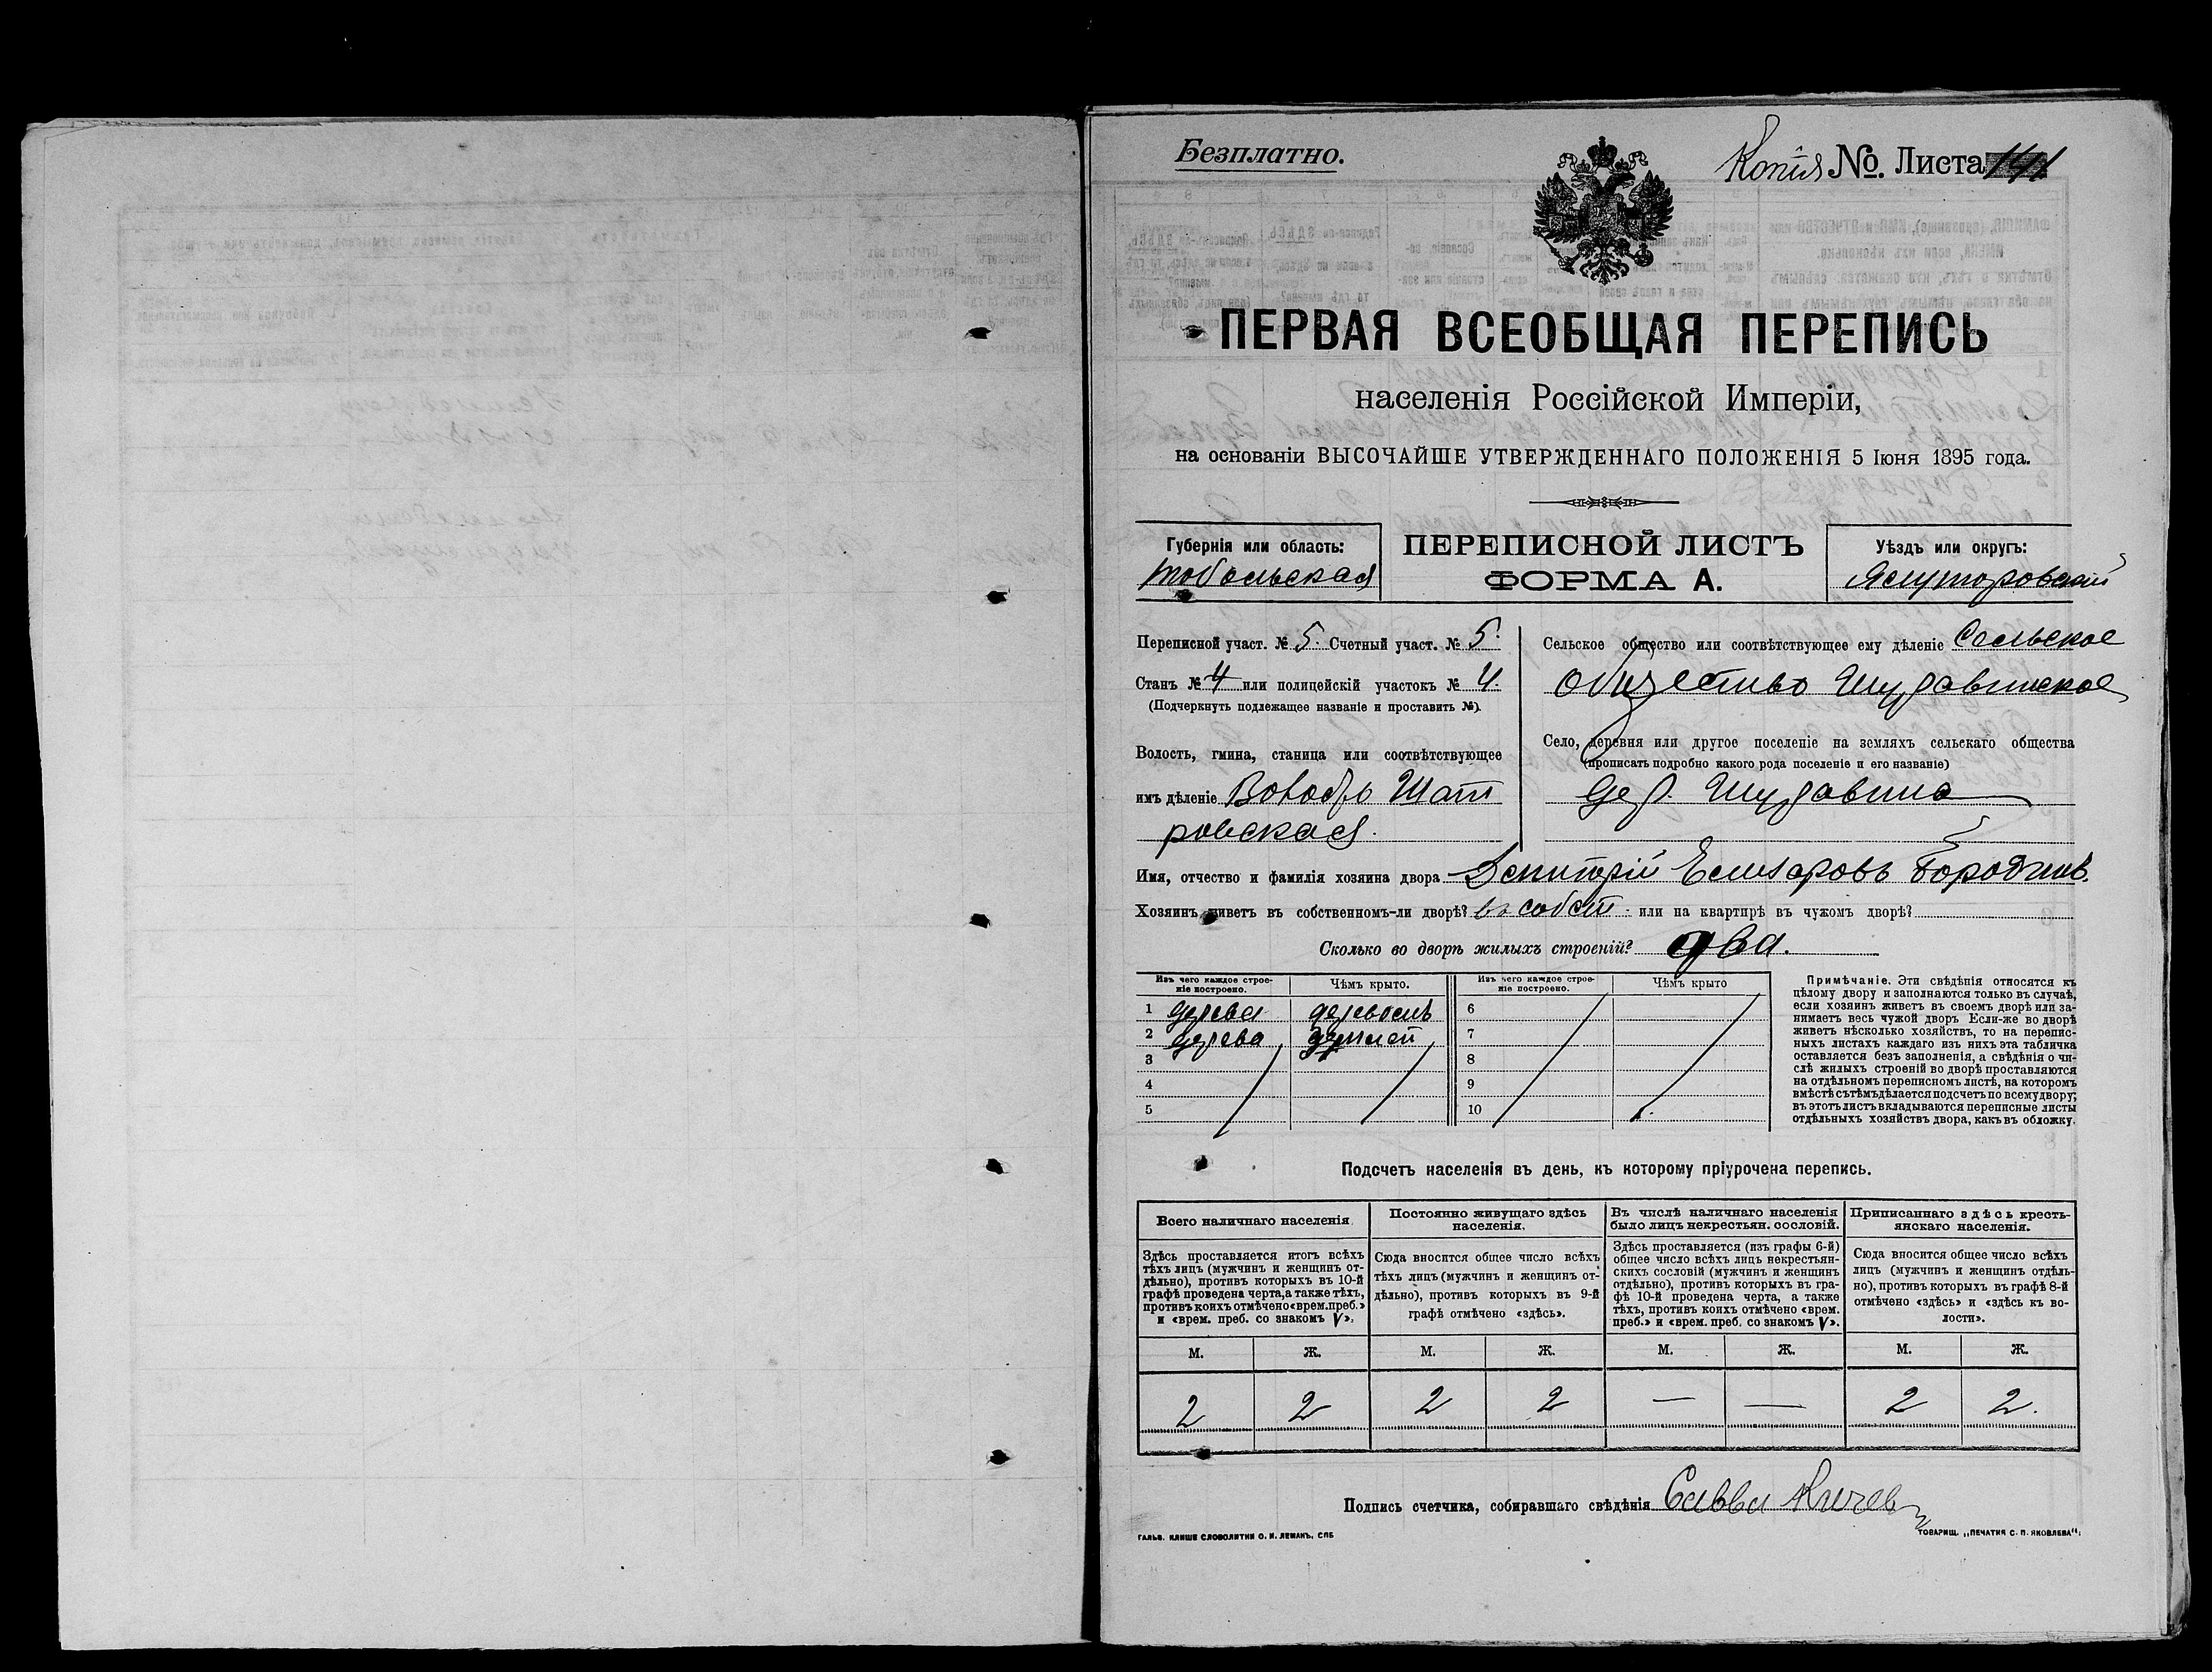 Безплатно.
Копія №. Листа 141
ПЕРВАЯ ВСЕОБЩАЯ ПЕРЕПИСЬ
населенія Россійской Имперіи,
на основаніи ВЫСОЧАЙШЕ УТВЕРЖДЕННАГО ПОЛОЖЕНІЯ 5 Іюня 1895 года.
Губернія или область:
Тобольская
ПЕРЕПИСНОЙ ЛИСТЪ
ФОРМА А.
Уѣздъ или округъ:
Ялуторовскій
Переписной участ. № 5. Счетный участ. № 5.
Станъ № 4 или полицейскій участокъ № 4.
(Подчеркнуть подлежащее названіе и проставить №).
Волость, гмина, станица или соотвѣтствующее
имъ дѣленіе Шат
ровская.
Сельское общество или соотвѣтствующее ему дѣленіе Сельское
общество
Село, деревня или другое поселеніе на земляхъ сельскаго общества
(прописать подробно какого рода поселеніе и его названіе)
дер.
Имя, отчество и фамилія хозяина двора Дмитрій Елизаровъ Бородинъ.
Хозяинъ живетъ въ собственномъ-ли дворѣ? въ собст. или на квартирѣ въ чужомъ дворѣ?
Сколько во дворѣ жилыхъ строеній? два.
Изъ чего каждое строе-
ніе построено.
Чѣмъ крыто.
Изъ чего каждое строе-
ніе построено.
Чѣмъ крыто
1 дерева деревомъ 6
2 дерева землей 7
3 8
4 9
5 10
Примѣчаніе. Эти свѣдѣнія относятся къ
цѣлому двору и заполняются только въ случаѣ,
если хозяинъ живетъ въ своемъ дворѣ или за-
нимаетъ весь чужой дворъ Если-же во дворѣ
живетъ нѣсколько хозяйствъ, то на перепис-
ныхъ листахъ каждаго изъ нихъ эта табличка
оставляется безъ заполненія, а свѣдѣнія о чи-
слѣ жилыхъ строеній во дворѣ проставляются
на отдѣльномъ переписномъ листѣ, на которомъ
вмѣстѣ съ тѣмъ дѣлается подсчетъ по всему двору;
въ этотъ листъ вкладываются переписные листы
отдѣльныхъ хозяйствъ двора, какъ въ обложку.
Подсчетъ населенія въ день, къ которому пріурочена перепись.
Всего наличнаго населенія.
Здѣсь проставляется итогъ всѣхъ
тѣхъ лицъ (мужчинъ и женщинъ от-
дѣльно), противъ которыхъ въ 10-й
графѣ проведена черта, а также тѣхъ,
противъ коихъ отмѣчено «врем. преб.»
и «врем. преб. со знакомъ V».
Постоянно живущаго здѣсь
населенія.
Сюда вносится общее число всѣхъ
тѣхъ лицъ (мужчинъ и женщинъ от-
дѣльно), противъ которыхъ въ 9-й
графѣ отмѣчено «здѣсь».
Въ числѣ наличнаго населенія
было лицъ некрестьян. сословій.
Здѣсь проставляется (изъ графы 6-й)
общее число всѣхъ лицъ некрестьян-
скихъ сословій (мужчинъ и женщинъ
отдѣльно), противъ которыхъ въ гра-
фѣ 10-й проведена черта, а также
тѣхъ, противъ коихъ отмѣчено «врем.
преб.» и «врем. преб. со знакомъ V».
Приписаннаго здѣсь кресть-
янскаго населенія.
Сюда вносится общее число всѣхъ
лицъ (мужчинъ и женщинъ отдѣль-
но), противъ которыхъ въ графѣ 8-й
отмѣчено «здѣсь» и «здѣсь къ во-
лости».
М. Ж. М. Ж. М. Ж. М. Ж.
2 2 2 2 — — 2 2.
Подпись счетчика, собиравшаго свѣдѣнія Савва Кичев
ГАЛЬВ. КЛИШЕ СЛОВОЛИТНИ О. И. ЛЕМАНЪ, СПБ
ТОВАРИЩ. „ПЕЧАТНЯ С. П. ЯКОВЛЕВА“.